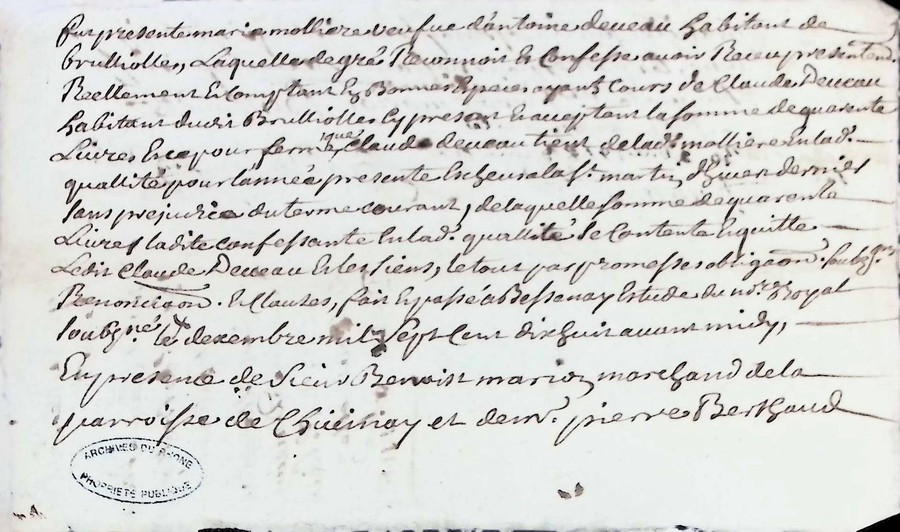 fut presente marie molliere veufve d'antoine deveau habitant de
brulliolles, Laquelle de gré Reconnoit et Confesse avoir Receu presentend.
Reellement et Comptant en Bonnes Especes ayant Cours de Claude Deveau
habitant dudit Brulliolles Cy present et acceptant la somme de quarente
Livres et ce pour ferme que Claude deveau tient de lad. molliere en lad.
quallité pour l'année presente Escheue a la st. martin d'hiver dernier
sans prejudice du terme courant, de laquelle somme de quarente
Livres ladite confessante en lad. quallité se Contente et quitte
Ledit Claude Deveau et les siens, le tout par promesses obligaon. soubz.
Renonciaon. et Clauses, fait et passé a Bessenay Estude du nore. Royal
soubgné. le dexembre mil sept Cent dix huit avant midy,
En presence de Sieur Benoist marion marchand de la
parroisse de Chevinay et de mr. pierre Berthaud
ARCHIVES DU RHONE
PROPRIÉTÉ PUBLIQUE